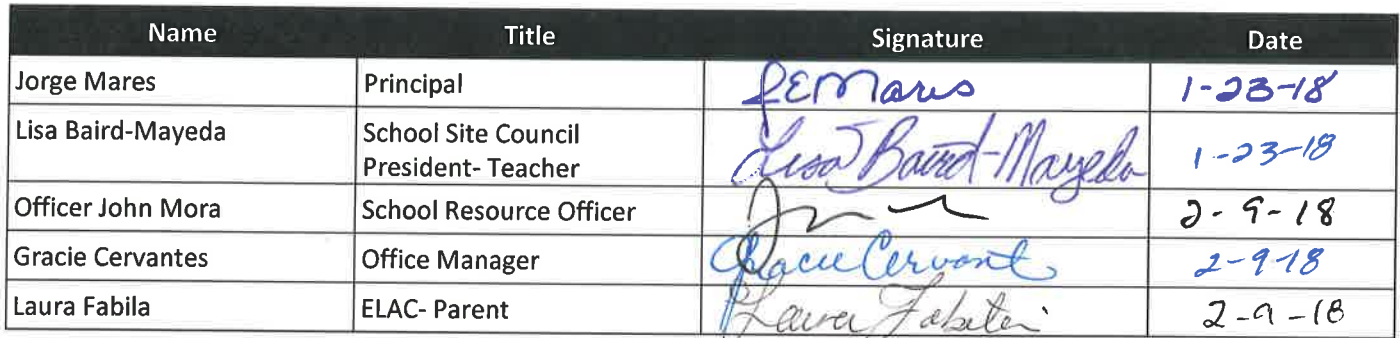 Name Title Signature Date
Jorge Mares Principal JEMares 1-23-18
Lisa Baird-Mayeda School Site Council Lisa Baird-Mayeda 1-23-18
President- Teacher
Officer John Mora School Resource Officer 2-9-18
Gracie Cervantes Office Manager Gracie Cervantes 2-9-18
Laura Fabila ELAC- Parent Laura Fabila 2-9-18